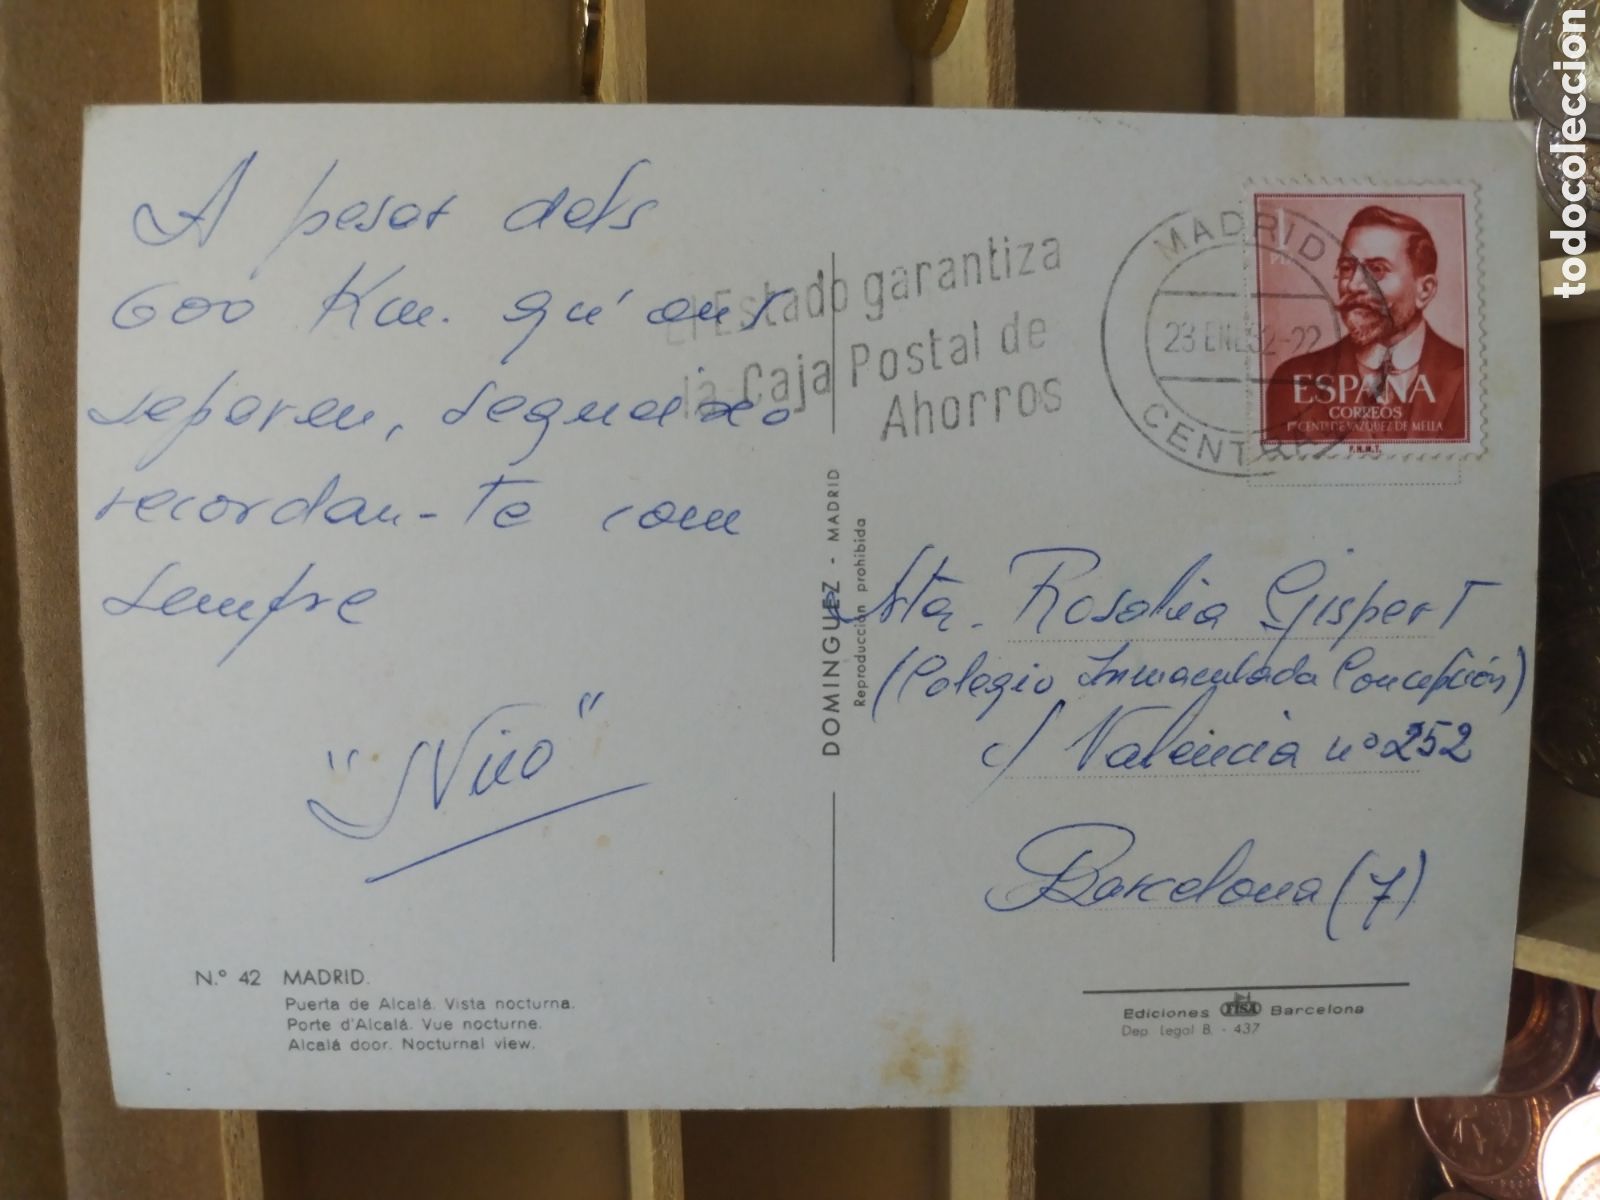 A pesar dels
600 Km. qu'ens
separen, segueixo
recordan-te com
sempre
"Nico"
Nº 42 MADRID.
Puerta de Alcalá. Vista nocturna.
Porte d'Alcalá. Vue nocturne.
Alcalá door. Nocturnal view.
El Estado garantiza
la Caja Postal de
Ahorros
MADRID
23 ENE 62-22
CENTRAL
1 PTA
ESPAÑA
CORREOS
1er CENTº DE VAZQUEZ DE MELLA
F.N.M.T.
DOMINGUEZ - MADRID
Reproducción prohibida
Srta. Rosalia Gispert
(Colegio Inmaculada Concepción)
c/ Valencia nº 252
Barcelona (7)
Ediciones FISA Barcelona
Dep. Legal B. - 437
todocoleccion